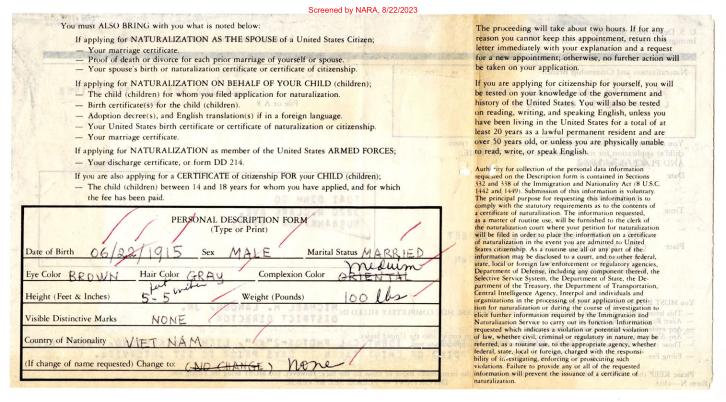 Screened by NARA, 8/22/2023
You must ALSO BRING with you what is noted below:
If applying for NATURALIZATION AS THE SPOUSE of a United States Citizen;
— Your marriage certificate.
— Proof of death or divorce for each prior marriage of yourself or spouse.
— Your spouse's birth or naturalization certificate or certificate of citizenship.
If applying for NATURALIZATION ON BEHALF OF YOUR CHILD (children);
— The child (children) for whom you filed application for naturalization.
— Birth certificate(s) for the child (children).
— Adoption decree(s), and English translation(s) if in a foreign language.
— Your United States birth certificate or certificate of naturalization or citizenship.
— Your marriage certificate.
If applying for NATURALIZATION as member of the United States ARMED FORCES;
— Your discharge certificate, or form DD 214.
If you are also applying for a CERTIFICATE of citizenship FOR your CHILD (children);
— The child (children) between 14 and 18 years for whom you have applied, and for which
the fee has been paid.
PERSONAL DESCRIPTION FORM
(Type or Print)
Date of Birth 06/22/1915 Sex MALE Marital Status MARRIED
medium
Eye Color BROWN Hair Color GRAY Complexion Color ORIENTAL
Height (Feet & Inches) 5-5 Weight (Pounds) 100 lbs
Visible Distinctive Marks NONE
Country of Nationality VIET NAM
(If change of name requested) Change to: (NO CHANGE) none
The proceeding will take about two hours. If for any
reason you cannot keep this appointment, return this
letter immediately with your explanation and a request
for a new appointment; otherwise, no further action will
be taken on your application.
If you are applying for citizenship for yourself, you will
be tested on your knowledge of the government and
history of the United States. You will also be tested
on reading, writing, and speaking English, unless you
have been living in the United States for a total of at
least 20 years as a lawful permanent resident and are
over 50 years old, or unless you are physically unable
to read, write, or speak English.
Authority for collection of the personal data information
requested on the Description form is contained in Sections
332 and 338 of the Immigration and Nationality Act (8 U.S.C.
1442 and 1449). Submission of this information is voluntary.
The principal purpose for requesting this information is to
comply with the statutory requirements as to the contents of
a certificate of naturalization. The information requested,
as a matter of routine use, will be furnished to the clerk of
the naturalization court where your petition for naturalization
will be filed in order to place the information on a certificate
of naturalization in the event you are admitted to United
States citizenship. As a routine use all or any part of the
information may be disclosed to a court, and to other federal,
state, local or foreign law enforcement or regulatory agencies,
Department of Defense, including any component thereof, the
Selective Service System, the Department of State, the De-
partment of the Treasury, the Department of Transportation,
Central Intelligence Agency, Interpol and individuals and
organizations in the processing of your application or peti-
tion for naturalization or during the course of investigation to
elicit further information required by the Immigration and
Naturalization Service to carry out its function. Information
requested which indicates a violation or potential violation
of law, whether civil, criminal or regulatory in nature, may be
referred, as a routine use, to the appropriate agency, whether
federal, state, local or foreign, charged with the responsi-
bility of investigating, enforcing or prosecuting such
violations. Failure to provide any or all of the requested
information will prevent the issuance of a certificate of
naturalization.